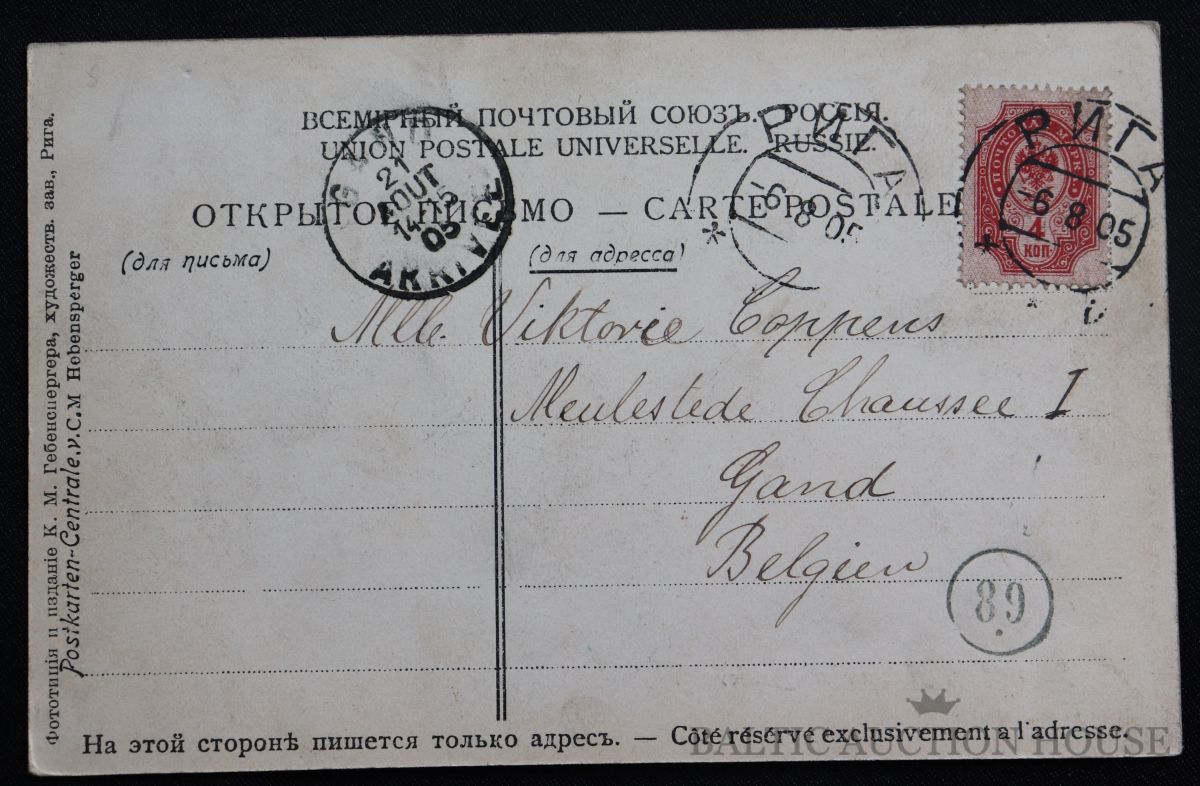 ВСЕМІРНЫЙ ПОЧТОВЫЙ СОЮЗЪ. РОССІЯ.
UNION POSTALE UNIVERSELLE. RUSSIE.
ОТКРЫТОЕ ПИСЬМО — CARTE POSTALE
(для письма)
(для адресса)
21
AOUT
14-15
05
ARRIVEE
РИГА
-6 8 05
ПОЧТОВАЯ МАРКА
4
КОП
РИГА
-6 8 05
Mlle. Viktorie Coppens
Meulestede Chaussee I
Gand
Belgien
89
На этой сторонѣ пишется только адресъ. — Côté résérvé exclusivement a l'adresse.
Фототипія и изданіе К. М. Гебенспергера, художеств. зав., Рига.
Postkarten-Centrale.v.C.M Hebensperger
BALTIC AUCTION HOUSE